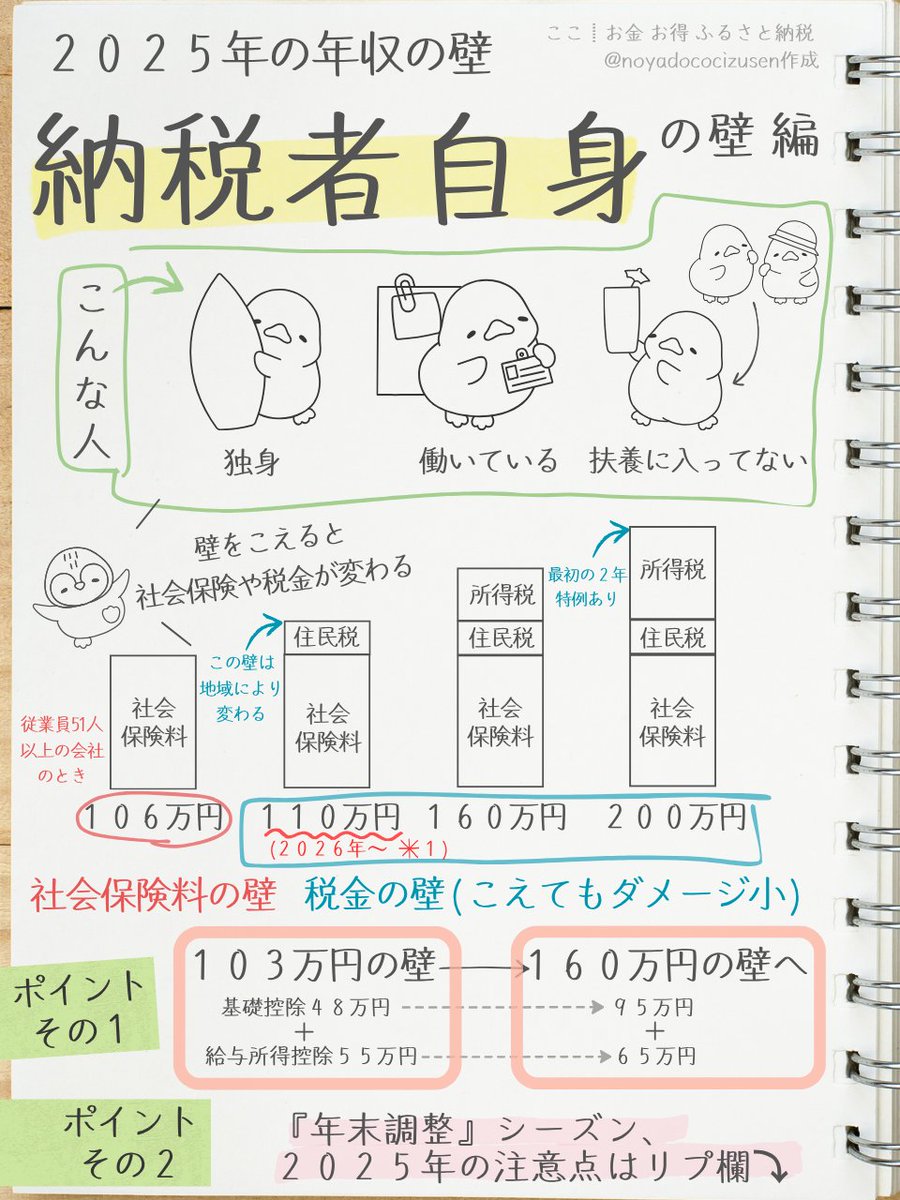 ２０２５年の年収の壁
ここ┊お金 お得 ふるさと納税
@noyadococizusen作成
納税者自身の壁 編
こんな人
独身
働いている
扶養に入ってない
壁をこえると
社会保険や税金が変わる
最初の２年
特例あり
所得税
所得税
住民税
住民税
住民税
この壁は
地域により
変わる
社会
保険料
社会
保険料
社会
保険料
社会
保険料
従業員51人
以上の会社
のとき
１０６万円
１１０万円
１６０万円
２００万円
(２０２６年〜 ✳︎１)
社会保険料の壁
税金の壁(こえてもダメージ小)
ポイント
その１
１０３万円の壁
１６０万円の壁へ
基礎控除４８万円
９５万円
＋
＋
給与所得控除５５万円
６５万円
ポイント
その２
『年末調整』シーズン、
２０２５年の注意点はリプ欄